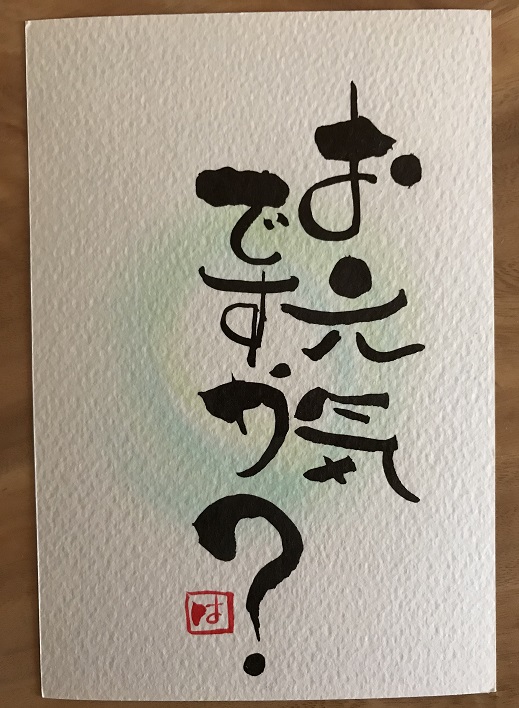 お元気
ですか？
は